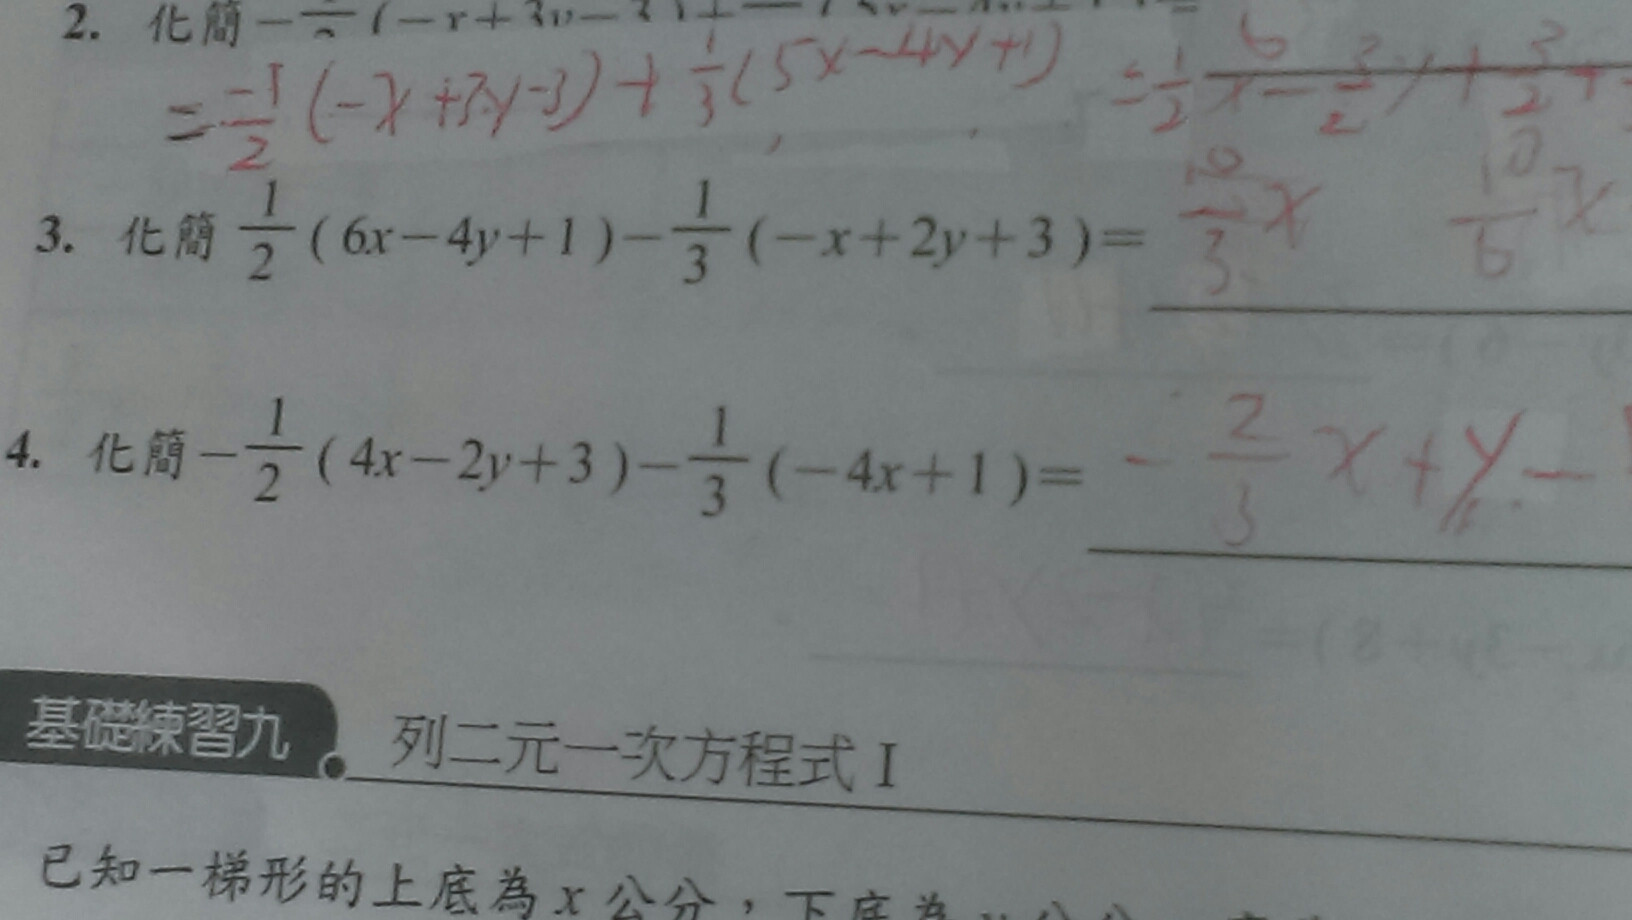 2. 化簡
= -1/2 (-x+3y-3) + 1/3 (5x-4y+1) = 1/2 x - 3/2 y + 3/2 +
3. 化簡 1/2 ( 6x－4y＋1 )－1/3 (－x＋2y＋3 )＝ 10/3 x 10/6 x
4. 化簡－1/2 ( 4x－2y＋3 )－1/3 (－4x＋1 )＝ - 2/3 x + y -
基礎練習九 列二元一次方程式 I
已知一梯形的上底為 x 公分，下底為